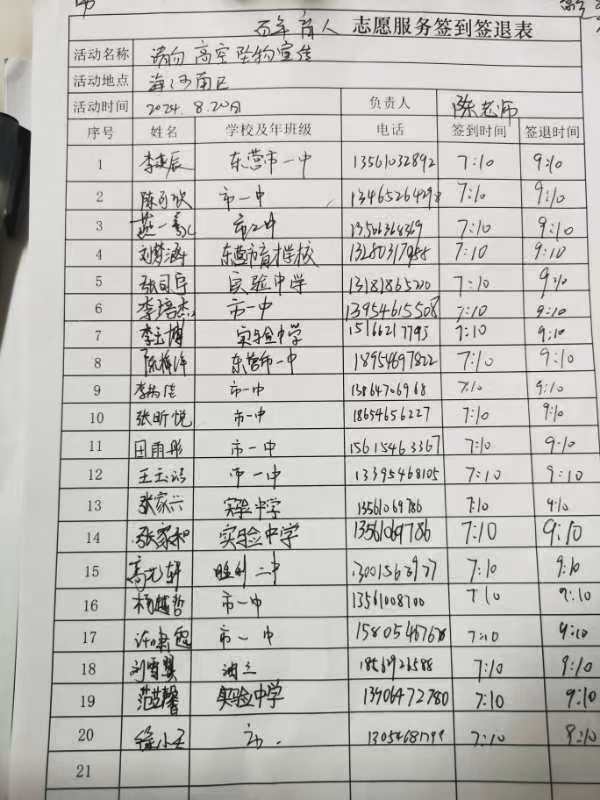 百年育人 志愿服务签到签退表
活动名称 请勿高空坠物宣传
活动地点 海河南区
活动时间 2024.8.20日 负责人 陈老师
序号 姓名 学校及年班级 电话 签到时间 签退时间
1 李建辰 东营市一中 13561032892 7:10 9:10
2 市一中 13465264298 7:10 9:10
3 市2中 7:10 9:10
4 刘梦涵 东营市育才学校 7:10 9:10
5 实验中学 13181865200 7:10 9:10
6 李培杰 市一中 13954615508 7:10 9:10
7 李玉博 实验中学 15166217793 7:10 9:10
8 东营市一中 18954697822 7:10 9:10
9 市一中 13864706968 7:10 9:10
10 张昕悦 市一中 18654656227 7:10 9:10
11 田雨彤 市一中 15615463367 7:10 9:10
12 市一中 13395468105 7:10 9:10
13 张家兴 实验中学 13561069786 7:10 9:10
14 张家和 实验中学 13561069786 7:10 9:10
15 胜利二中 7:10 9:10
16 杨越哲 市一中 13561008700 7:10 9:10
17 市一中 15805467678 7:10 9:10
18 7:10 9:10
19 实验中学 13906472780 7:10 9:10
20 7:10 9:10
21